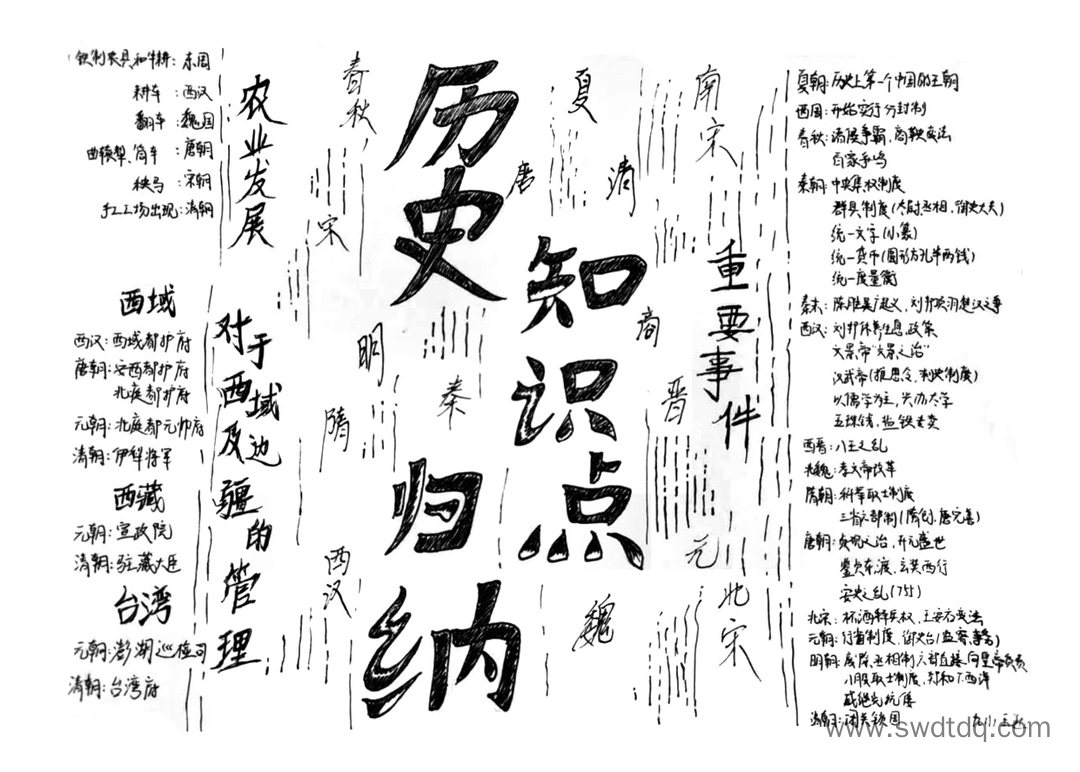 历史
知识点
归纳
农业发展
铁制农具和牛耕：东周
耕车：西汉
翻车：魏国
曲辕犁，筒车：唐朝
秧马：宋朝
手工工场出现：清朝
对于西域及边疆的管理
西域
西汉：西域都护府
唐朝：安西都护府
北庭都护府
元朝：北庭都元帅府
清朝：伊犁将军
西藏
元朝：宣政院
清朝：驻藏大臣
台湾
元朝：澎湖巡检司
清朝：台湾府
春秋
宋
明
隋
西汉
唐
秦
夏
清
商
魏
南宋
晋
元
北宋
重要事件
夏朝：历史上第一个中国的王朝
西周：开始实行分封制
春秋：诸侯争霸，商鞅变法
百家争鸣
秦朝：中央集权制度
群县制度（太尉，丞相，御史大夫）
统一文字（小篆）
统一货币（圆形方孔半两钱）
统一度量衡
秦末：陈胜吴广起义，刘邦项羽楚汉之争
西汉：刘邦休养生息政策
文景帝“文景之治”
汉武帝（推恩令，刺史制度）
以儒学为主，兴办太学
五珠钱，盐铁专卖
西晋：八王之乱
北魏：孝文帝改革
隋朝：科举取士制度
三省六部制（隋创，唐完善）
唐朝：贞观之治，开元盛世
鉴真东渡，玄奘西行
安史之乱（755）
北宋：杯酒释兵权，王安石变法
元朝：行省制度，御史台（监察事务）
明朝：废除丞相制六部直接向皇帝负责
八股取士制度，郑和下西洋
戚继光抗倭
清朝：闭关锁国
www.swdtdq.com